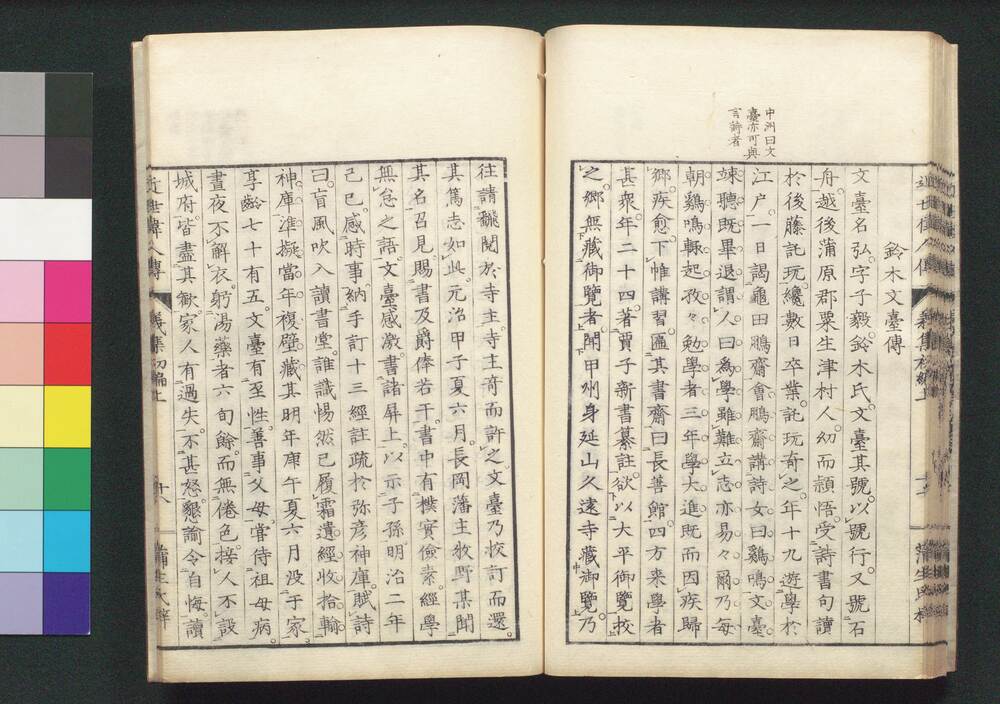 中洲曰文
臺亦可與
言詩者
鈴木文臺傳
文臺名弘。字子毅。鈴木氏。文臺其號。以號行。又號石
舟。越後蒲原郡粟生津村人。幼而頴悟。受詩書句讀
於後藤託玩。纔數日卒業。託玩奇之。年十九遊學於
江戸。一日謁龜田鵬齋。會鵬齋講詩女曰鷄鳴。文臺
竦聽既畢。退謂人曰。爲學雖難。立志亦易々爾。乃每
朝鷄鳴輙起。孜々勉學者三年。學大進。既而因疾歸
郷。疾愈。下帷講習。匾其書齋曰長善館。四方來學者
甚衆。年二十四。著賈子新書纂註。欲以大平御覽校
之。郷無藏御覽者。聞甲州身延山久遠寺藏御覽。乃
往請飜閲於寺主。寺主奇而許之。文臺乃校訂而還。
其篤志如此。元治甲子夏六月。長岡藩主牧野某聞
其名召見。賜書及爵俸若干。書中有樸實儉素。經學
無怠之語。文臺感激。書諸屏上。以示子孫。明治二年
己巳。感時事。納手訂十三經註疏於弥彦神庫。賦詩
曰。盲風吹入讀書堂。誰識惕然已履霜。遺經收拾輸
神庫。準擬當年複壁藏。其明年庚午夏六月没于家。
享齡七十有五。文臺有至性。善事父母。嘗侍祖母病。
晝夜不解衣。躬湯藥者六旬餘。而無倦色。接人不設
城府。皆盡其歡。家人有過失。不甚怒。懇諭令自悔。讀
近世偉人傳
義集初編上
十八
蒲生氏梓